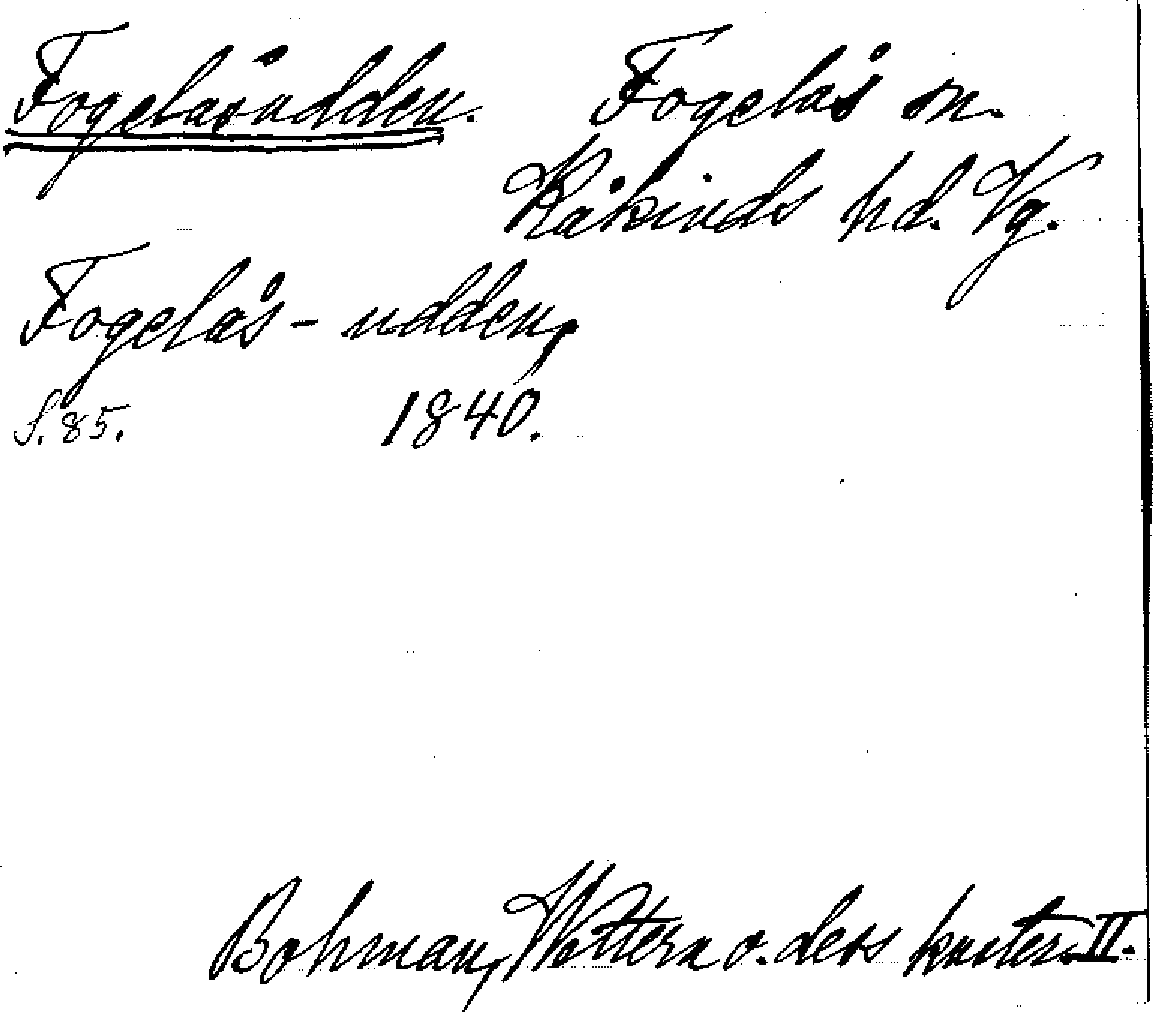 Fogelåsudden. Fogelås sn.
Kåkinds hd. Vg.
Fogelås - udden,
S. 85. 1840.
Bohman, Wettern o. dess kuster. II.